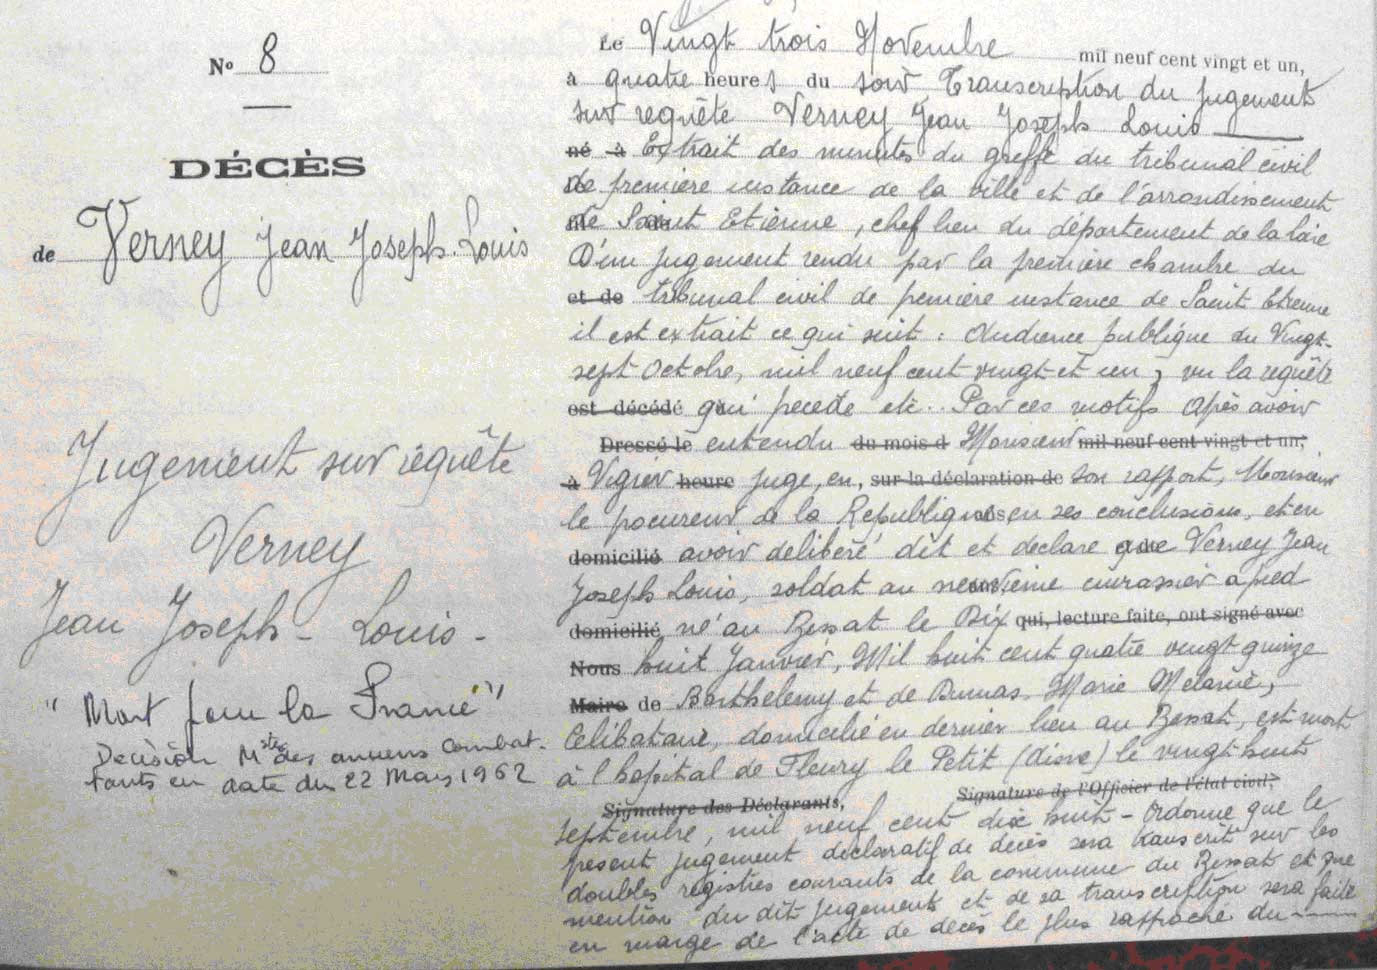 N° 8
DÉCÈS
de Verney Jean Joseph-Louis
Jugement sur requête
Verney
Jean Joseph-Louis-
"Mort pour la France"
Décision Mstre des anciens combat-
tants en date du 22 Mars 1962
Le Vingt trois Novembre mil neuf cent vingt et un,
à quatre heures du soir Transcription du jugement
sur requête Verney Jean Joseph Louis
né à Extrait des minutes du greffe du tribunal civil
De première instance de la ville et de l'arrondissement
de Saint Etienne, chef lieu du département de la Loire
D'un jugement rendu par la première chambre du
et de tribunal civil de première instance de Saint Etienne
il est extrait ce qui suit : Audience publique du Vingt-
sept Octobre, mil neuf cent vingt et un, vu la requête
est décédé qui precede etc.. Par ces motifs Après avoir
Dressé le entendu du mois d Monsieur mil neuf cent vingt et un,
à Vigier heure juge, en, sur la déclaration de son rapport, Monsieur
le procureur de la Republique, en ses conclusions, et en
domicilié avoir delibéré dit et declare que Verney Jean
Joseph Louis, soldat au neuvieme cuirassier à pied
domicilié né au Bessat le Dix qui, lecture faite, ont signé avec
Nous huit Janvier, Mil huit cent quatre vingt quinze
Maire de Barthelemy et de Dumas Marie Melanie,
Célibataire, domicilié en dernier lieu au Bessat, est mort
à l'hopital de Fleury le Petit (Aisne) le vingt huit
Signature des Déclarants, Signature de l'Officier de l'état civil,
septembre, mil neuf cent dix huit - Ordonne que le
present jugement declaratif de décès sera transcrit sur les
doubles registres courants de la commune du Bessat et que
mention du dit jugement et de sa transcription sera faite
en marge de l'acte de décès le plus rapproché du